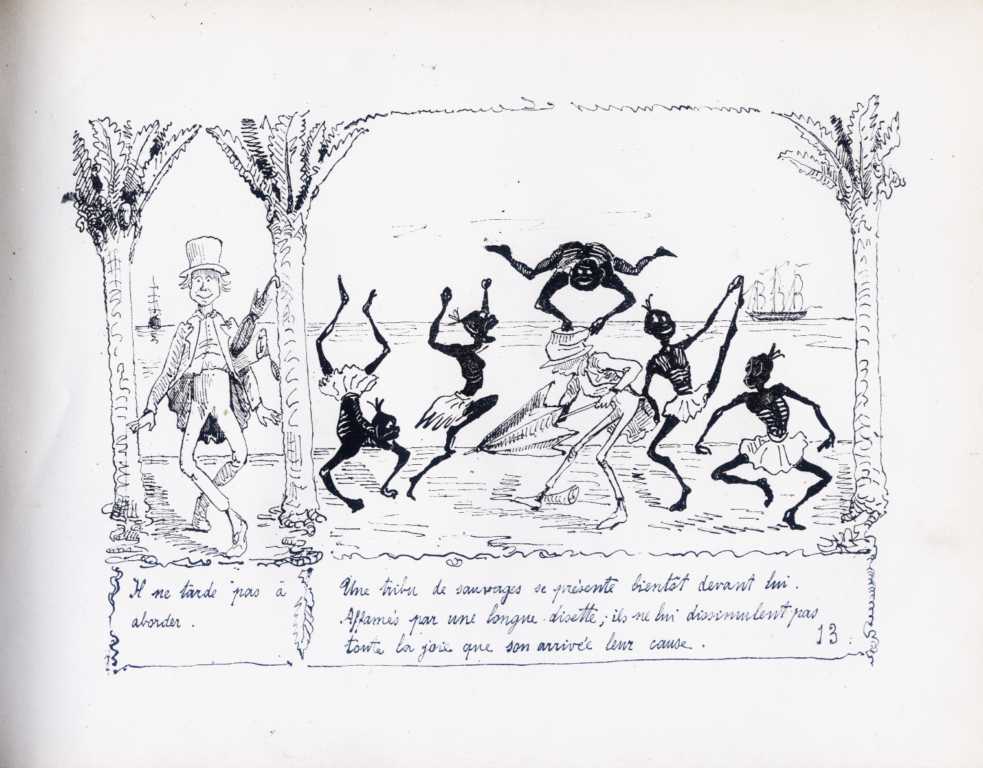 Il ne tarde pas à
aborder.
Une tribu de sauvages se présente bientôt devant lui.
Affamés par une longue disette, ils ne lui dissimulent pas
toute la joie que son arrivée leur cause.
13